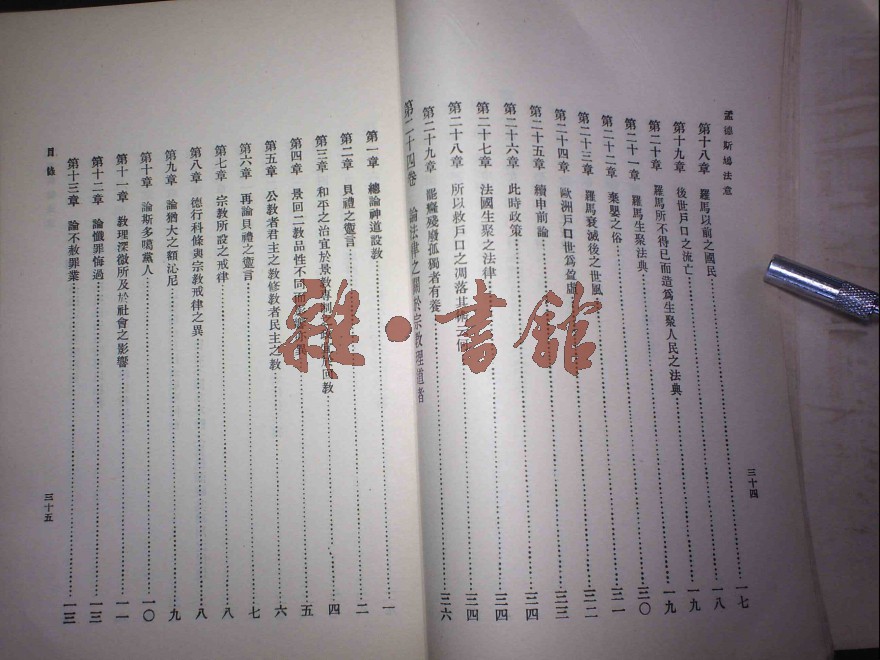 孟德斯鳩法意
第十八章 羅馬以前之國民 一七
第十九章 後世戶口之流亡 一八
第二十章 羅馬所不得已而造爲生聚人民之法典 一九
第二十一章 羅馬生聚法典 一九
第二十二章 棄嬰之俗 三〇
第二十三章 羅馬衰滅後之世風 三一
第二十四章 歐洲戶口世爲盈虛 三二
第二十五章 續申前論 三三
第二十六章 此時政策 三四
第二十七章 法國生聚之法律 三四
第二十八章 所以救戶口之凋落 三四
第二十九章 罷癃殘廢孤獨者有養 三六
三十四
第二十四卷 論法律之關於宗教理道者
第一章 總論神道設教 一
第二章 貝禮之讆言 二
第三章 和平之治宜於景教專制 回教 四
第四章 景回二教品性不同 五
第五章 公教者君主之教修教者民主之教 六
第六章 再論貝禮之讆言 七
第七章 宗教所設之戒律 八
第八章 德行科條與宗教戒律之異 八
第九章 論猶大之額沁尼 九
第十章 論斯多噶黨人 一〇
第十一章 教理深微所及於社會之影響 一一
第十二章 論懺罪悔過 一三
第十三章 論不赦罪業 一三
目錄
三十五
雜·書館